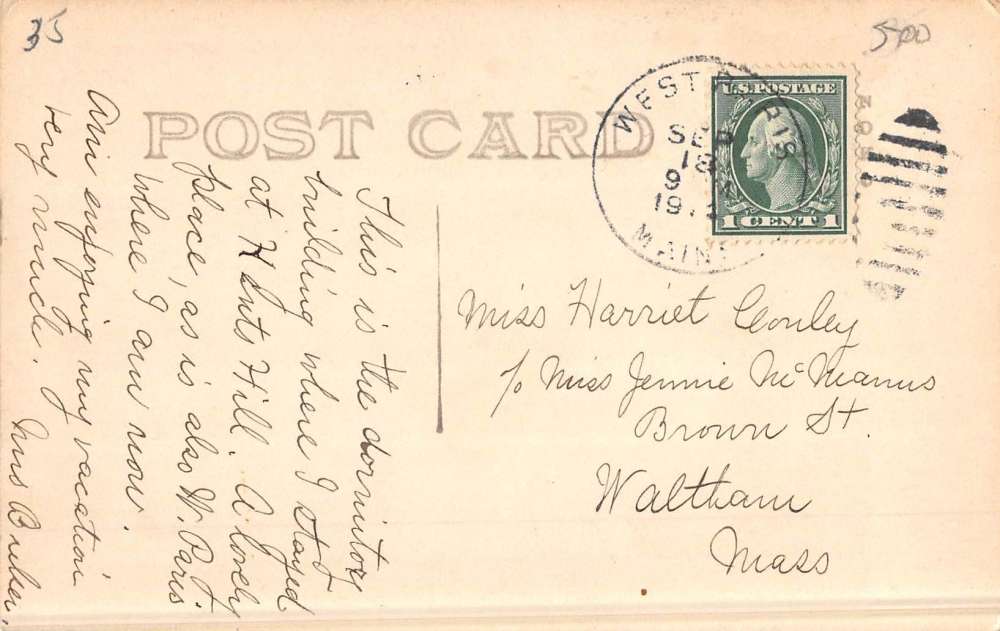 35
POST CARD
WEST PARIS
SEP
18
9
MAINE
U.S. POSTAGE
1 CENT 1
This is the dormitory
building where I stayed
at Kents Hill. A lovely
place, as is also W. Paris
where I am now.
Am enjoying my vacation
very much.
Miss Harriet Conley
℅ Miss Jennie McManus
Brown St.
Waltham
Mass